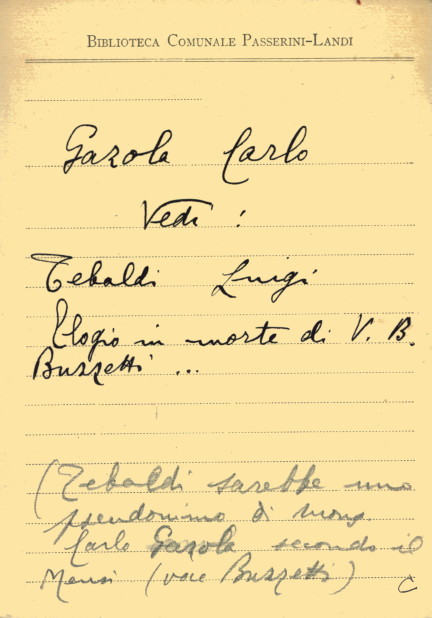 BIBLIOTECA COMUNALE PASSERINI-LANDI
Gazola Carlo
Vedi :
Tebaldi Luigi
Elogio in morte di V. B.
Buzzetti ...
(Tebaldi sarebbe uno
pseudonimo di mons.
Carlo Gazola secondo il
Mensi (voce Buzzetti)